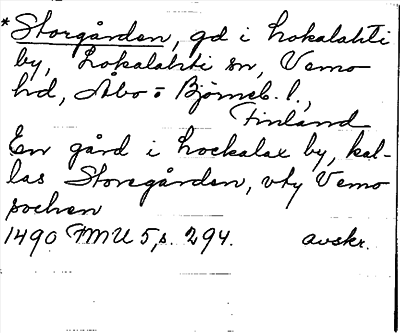 *Storgården, gd i Lokalahti
by, Lokalahti sn, Vemo
hd, Åbo o Björneb. l.,
Finland
En gård i Lockalax by, kal-
las Storegården, vty Vemo
sochen
1490 FMU 5, s. 294. avskr.